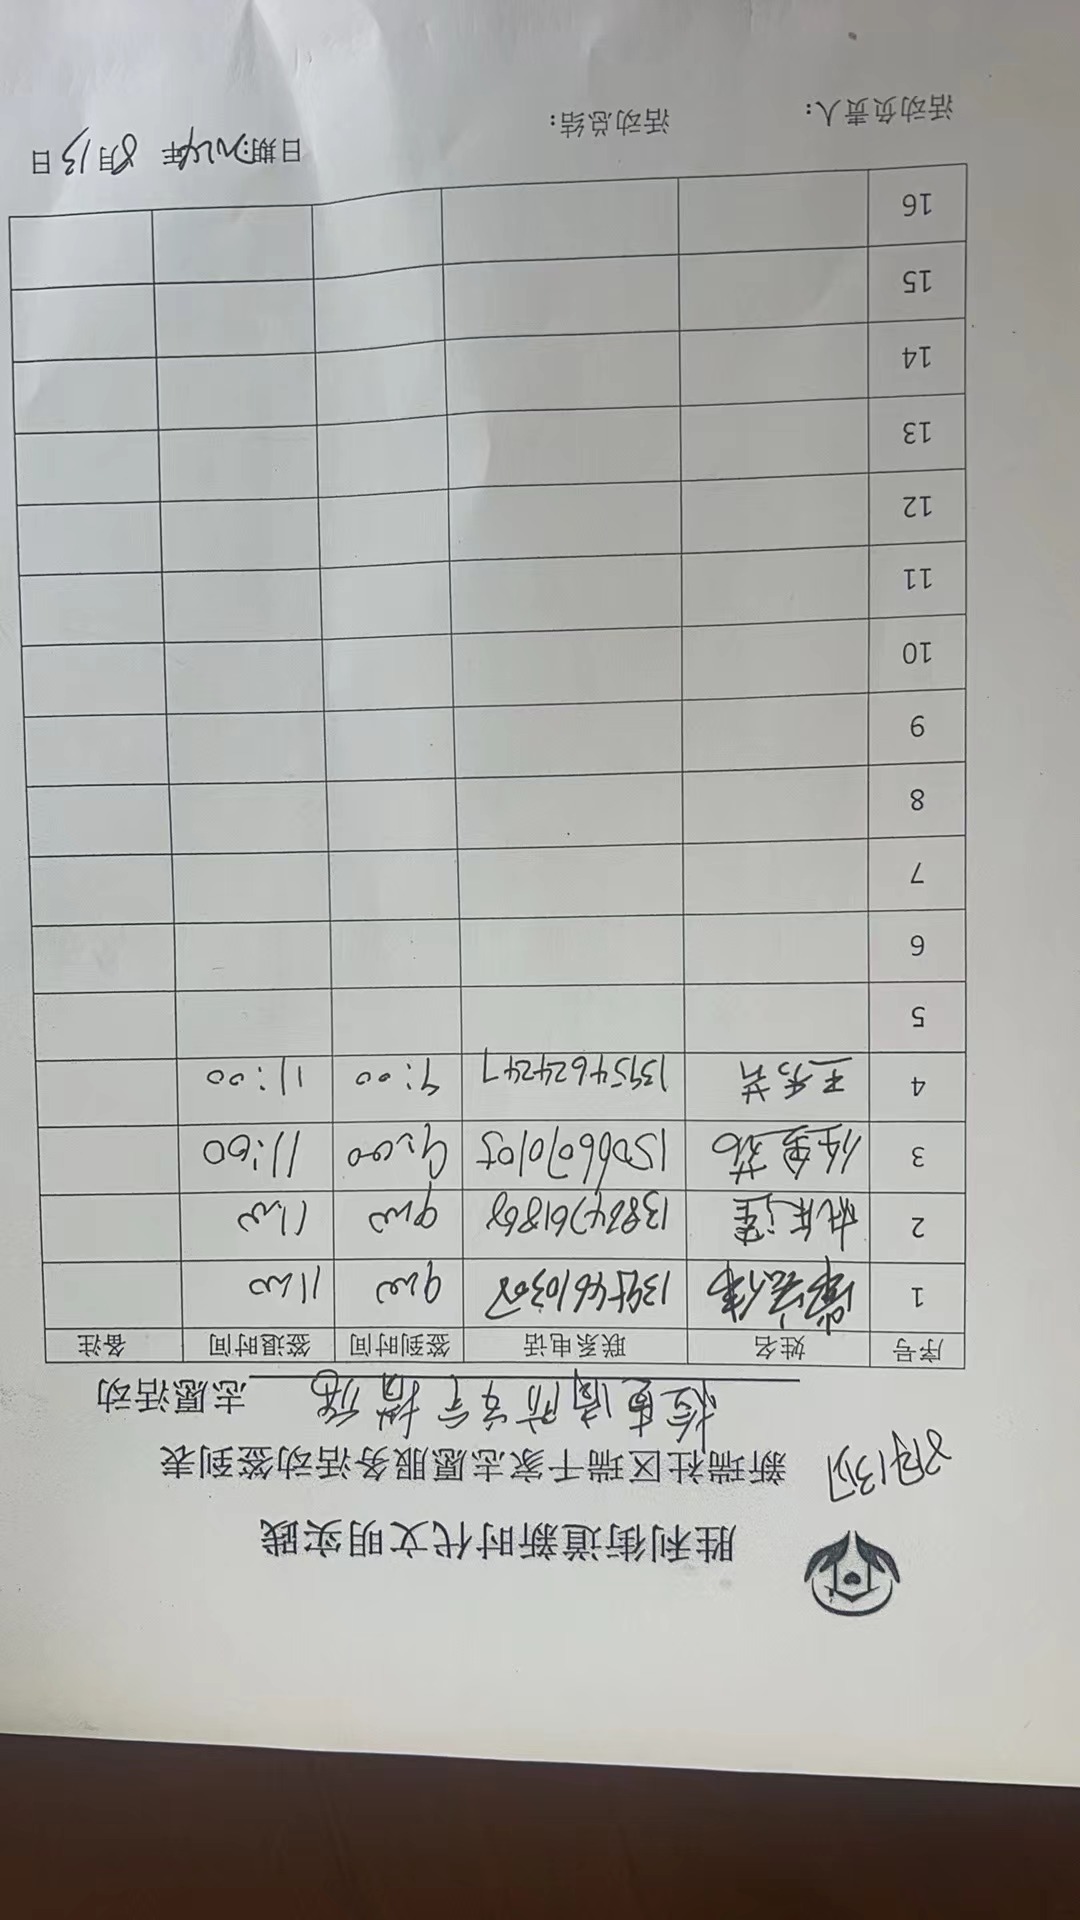 胜利街道新时代文明实践
新瑞社区瑞千家志愿服务活动签到表
8月13日
检查消防安全措施 志愿活动
序号 姓名 联系电话 签到时间 签退时间 备注
1 9:00 11:00
2 13864761868 9:00 11:00
3 15066070105 9:00 11:00
4 王秀芹 13954624247 9:00 11:00
5
6
7
8
9
10
11
12
13
14
15
16
活动负责人： 活动总结： 日期:2024年 8月13日